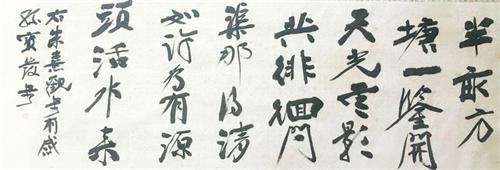 半畝方
塘一鑒開
天光雲影
共徘徊問
渠那得清
如許為有源
頭活水來
右朱熹觀書有感
孫寶發